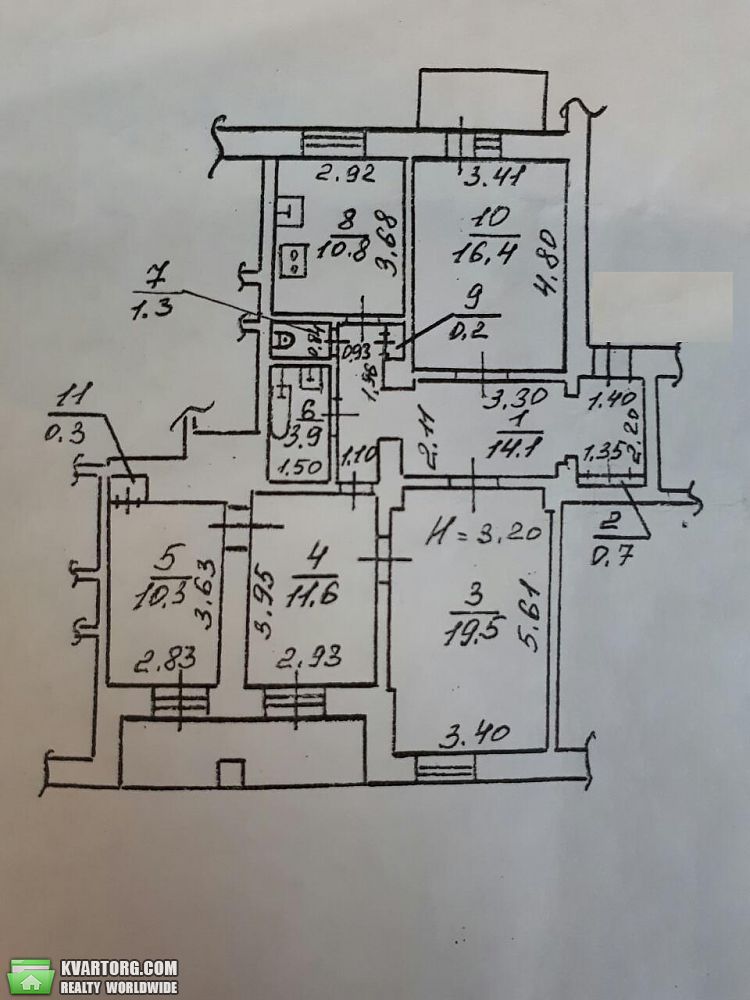 2.92
3.41
8
10.8
3.68
10
16.4
4.80
7
1.3
9
0.2
0.84
0.93
1.56
11
0.3
6
3.9
1.50
1.10
2.11
3.30
1
14.1
1.40
2.20
1.35
2
0.7
H = 3.20
5
10.3
3.63
4
11.6
3.95
3
19.5
5.61
2.83
2.93
3.40
KVARTORG.COM
REALTY WORLDWIDE